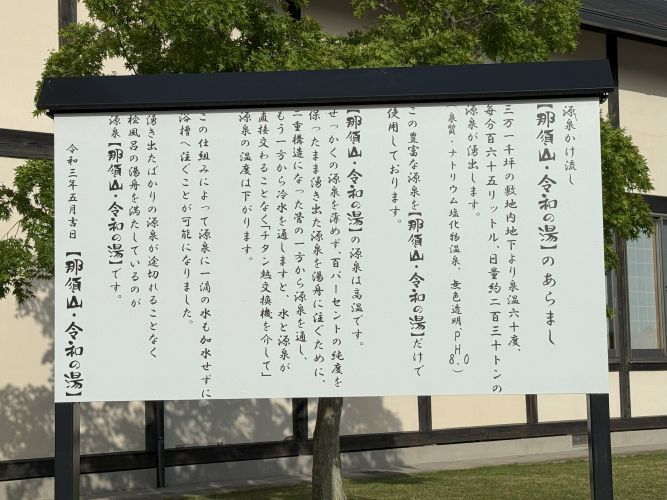 源泉かけ流し
【那須山・令和の湯】のあらまし
三万一千坪の敷地内地下より泉温六十度、
毎分百六十五リットル、日量約二百三十トンの
源泉が湧出します。
（泉質・ナトリウム塩化物温泉、無色透明、pH8.0）
この豊富な源泉を【那須山・令和の湯】だけで
使用しております。
【那須山・令和の湯】の源泉は高温です。
せっかくの源泉を薄めず、百パーセントの純度を
保ったまま湧き出た源泉を湯舟に注ぐために、
二重構造になった管の一方から源泉を通し、
もう一方から冷水を通しますと、水と源泉が
直接交わることなく「チタン熱交換機を介して」
源泉の温度は下がります。
この仕組みによって源泉に一滴の水も加水せずに
浴槽へ注ぐことが可能になりました。
湧き出たばかりの源泉が途切れることなく
松風呂の湯舟を満たしているのが
源泉【那須山・令和の湯】です。
令和三年五月吉日 【那須山・令和の湯】